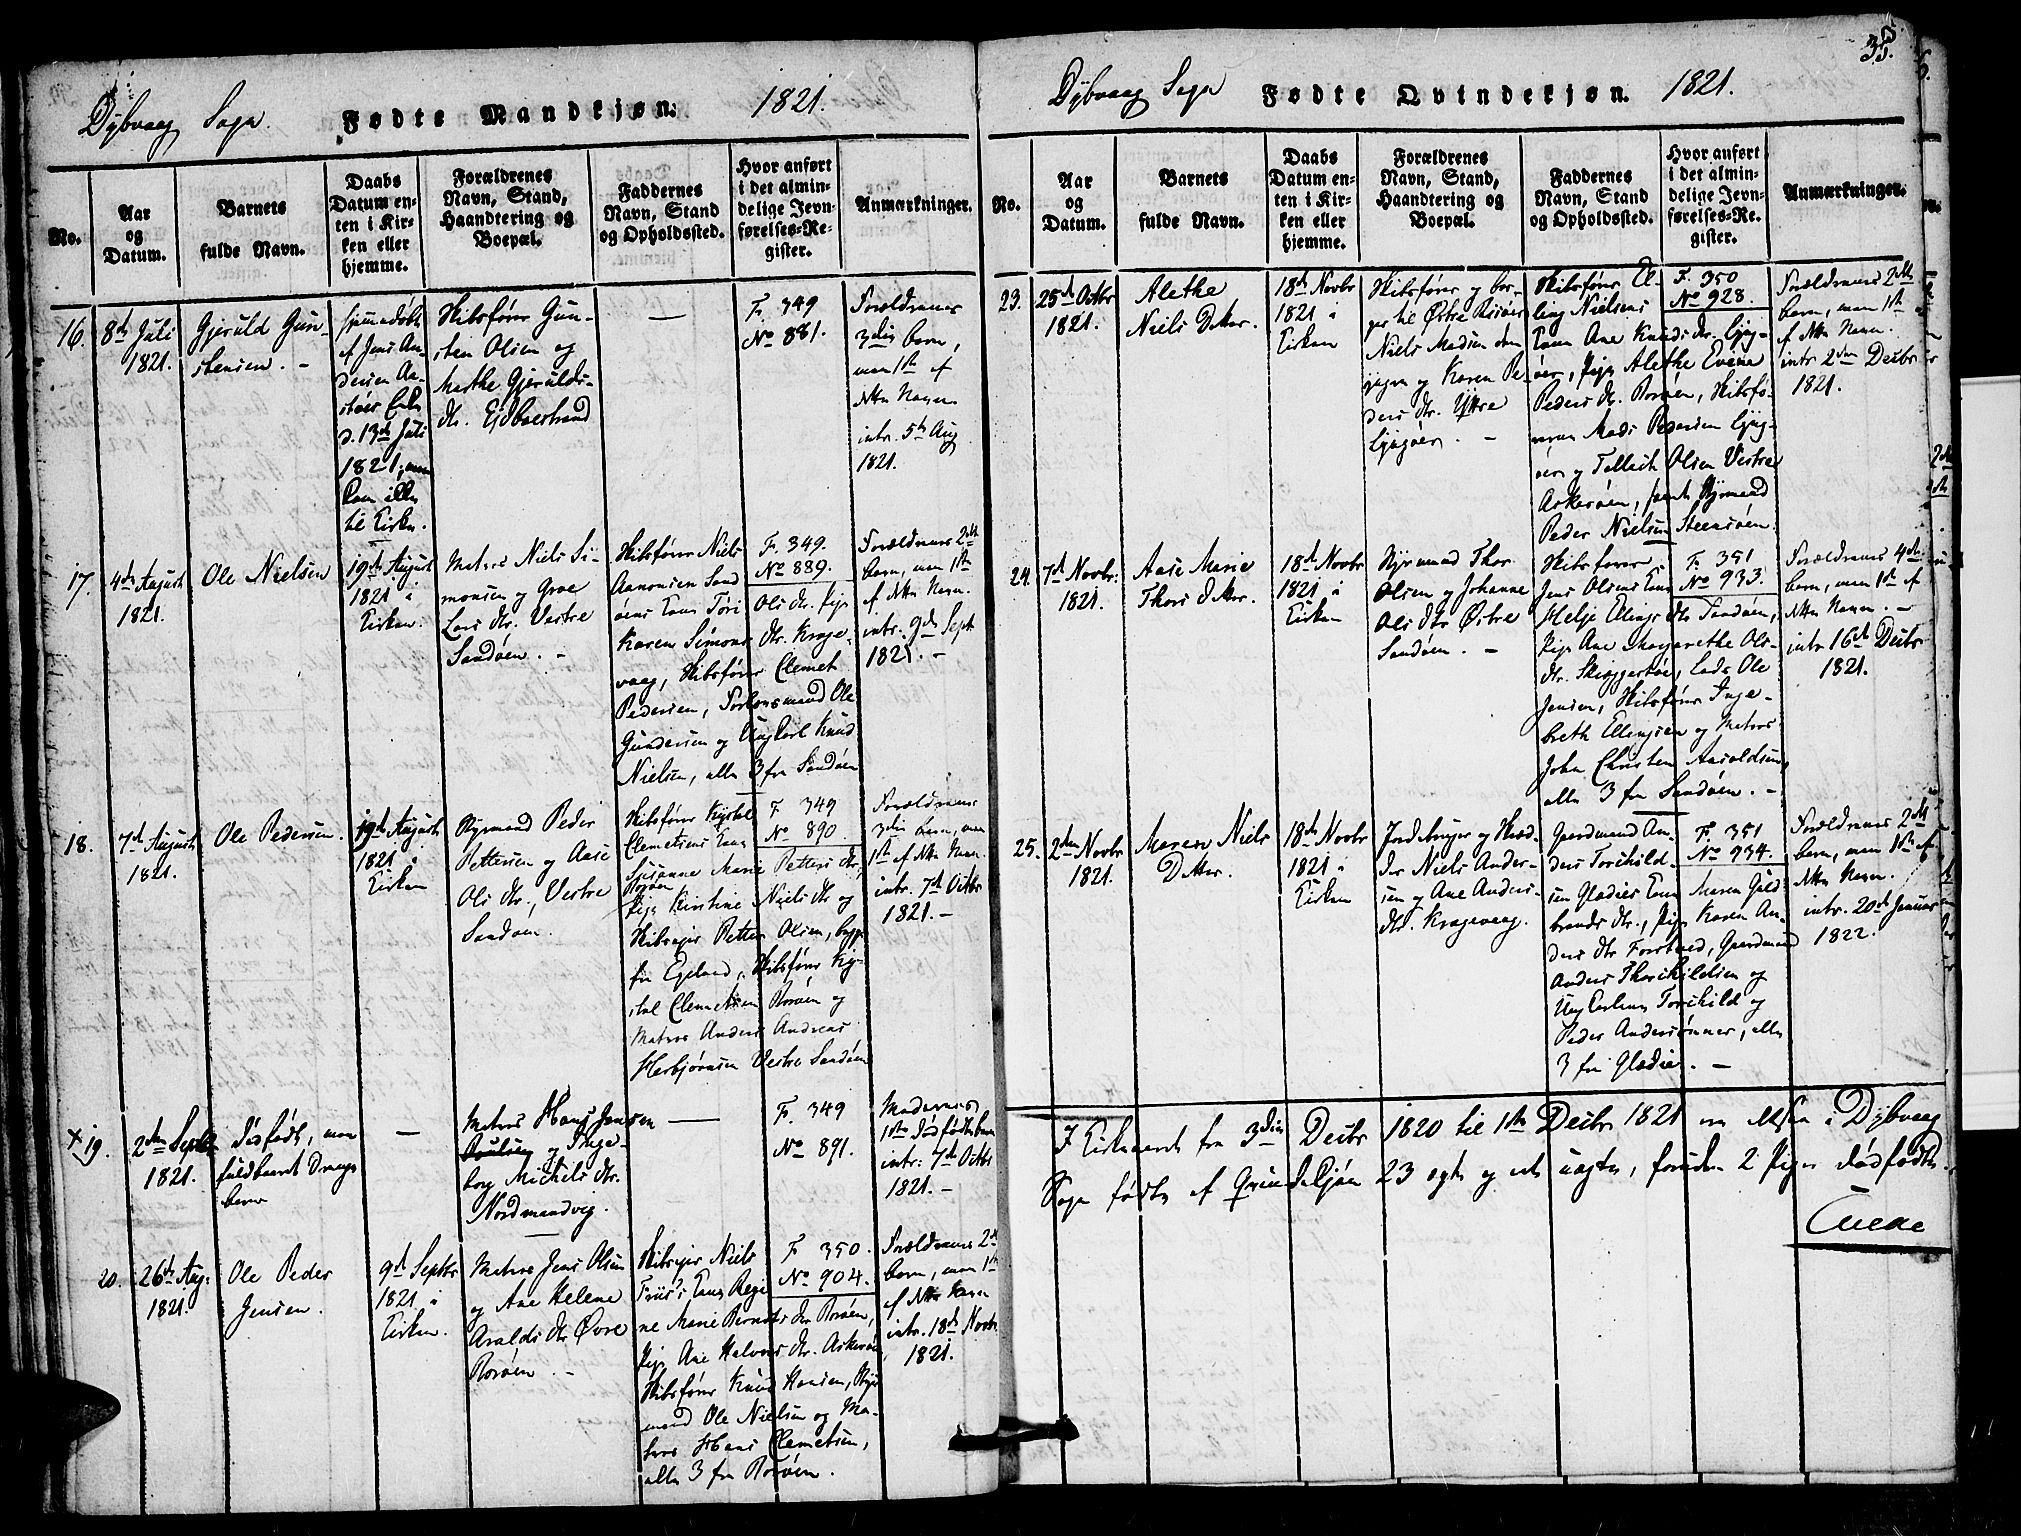 Dybvaag Sogn. Fødte Mandkjøn. 1821.
No.
Aar
og
Datum.
Barnets
fulde Navn.
Daabs
Datum en-
ten i Kir-
ken eller
hjemme.
Forældrenes
Navn, Stand,
Haandtering og
Boepæl.
Faddernes
Navn, Stand
og Opholdssted.
Hvor anført
i det almin-
delige Jevn-
førelses-Re-
gister.
Anmærkninger.
16.
8de Juli
1821.
Gjeruld Gun-
stensen. -
hjemmedøbt
af Jens An-
dersen
d. 13de Juli
1821, men
kom ikke
til Kirken.
Skibsfører Gun-
sten Olsen og
Marthe Gjerulds-
dtr. Eidboestrand
—
F. 349
No 881.
Forældrenes
3die barn,
men 1ste af
dette Navn
intr. 5te Aug
1821.
17.
4de August
1821.
Ole Nielsen
19de August
1821 i
Kirken.
Matros Niels Si-
monsen og Groe
Lars dtr. Vestre
Sandøen. -
Skibsfører Niels
Aanonsen Sand
øens Kone Tøri
Ols dtr. Pige
Karen Simons dtr. Krage-
vaag, Skibsfører Clemet
Pedersen, Ole
Gundersen og Ungkarl Knud
Nielsen, alle 3 fra Sandøen
F. 349.
No 889.
Forældrenes 2det
barn, men 1ste
af dette Navn.
intr. 9de Sept
1821. -
18.
7de August
1821.
Ole Pedersen.
19de August
1821 i
Kirken
Styrmand Peder
Pettersen og Aase
Ols dtr., Vestre
Sandøen.
Skibsfører Kystel
Clemetsens Kone
Susanne Marie Petters dtr,
Borøen
Pige Kirstine Niels dtr og
Skibsejer Petter Olsen, begge
fra Egeland, Skibsfører Ky-
stel Clemetsen Borøen og
Matros Anders Andreas
Herbjørnsen Vestre Sandøen
F. 349
No 890.
Forældrenes
3die barn, men
1ste af dette Navn.
intr. 7de Octbr
1821. -
x 19.
2den Septbr
1821.
Dødfødt, men
fuldbaaret Drenge
barn
—
Matros Hans Jensen
og Inge-
borg Michels dtr.
Nordmandvig.
—
F. 349
No 891.
Moderens
1ste dødfødte barn
intr: 7de Octbr
1821. -
20.
26de Aug:
1821.
Ole Peder
Jensen.
9de Septbr
1821 i
Kirken.
Matros Jens Olsen
og Ane Helene
Aralds dtr Øvre
Borøen. -
Skibsejer Niels
Friis's Kone Regi
ne Marie Bernts dtr Borøen,
Pige Ane Halvors dtr. Askerøen
Skibsfører Knud Hansen, Styr
mand Ole Nielsen og Ma-
tros Hans Clemetsen,
alle 3 fra Borøen.
F. 350.
No 904.
Forældrenes 2det
barn, men 1ste
af dette Navn
intr. 18de Novbr
1821.
35.
Dybvaag Sogn Fødte Qvindekjøn. 1821.
No.
Aar
og
Datum.
Barnets
fulde Navn.
Daabs
Datum en-
ten i Kir-
ken eller
hjemme.
Forældrenes
Navn, Stand,
Haandtering og
Boepæl.
Faddernes
Navn, Stand
og Opholdssted.
Hvor anført
i det almin-
delige Jevn-
førelses-Re-
gister.
Anmærkninger.
23.
25de Octbr
1821.
Alethe
Niels Datter.
18de Novbr
1821 i
Kirken
Skibsfører og bor-
ger til Østre Risøer
Niels Madsen den
yngre og Karen Pe-
ders dtr. Yttre
Lyngøer. -
Skibsfører El-
ling Nielsens
Kone Ane Knuds dtr. Lyng-
øer, Pige Alethe
Peders dtr. Borøen, Skibsfø-
rerne Mads Pedersen Lyng-
øer og Tellech Olsen Vestre
Askerøen, samt Styrmand
Peder Nielsen Steensøen.
F. 350
No 928.
Forældrenes 2det
barn, men 1ste
af dette Navn.
intr 2den Decbr
1821.
24.
7de Novbr:
1821.
Aase Marie
Thors Datter.
18de Novbr
1821 i
Kirken
Styrmand Thor
Olsen og Johanne
Ols dtr Østre
Sandøen. -
Skibsfører
Jens Olsens Kone
Helje Ellings dtr Sandøen,
Pige Ane Margarethe Ols-
dtr. Lods Ole
Jensen, Skibsfører Inge-
breth Ellingsen og Matros
John Christen Aaroldsen,
alle 3 fra Sandøen. -
F. 351
No 933.
Forældrenes 4de
barn, men 1ste af
dette Navn. -
intr 16de Decbr
1821.
25.
2den Novbr
1821.
Maren Niels
Datter.
18de Novbr
1821 i
Kirken
Jordebruger og
Niels Ander-
sen og Ane Anders-
dtr. Kragevaag.
Gaardmand An-
ders Torchild-
sen Gladies Kone Maren Guld-
brands dtr., Pige Karen An-
ders dtr Gaardmand
Anders Thorchildsen og
Ungkarlene Torchild og
Peder Anderssønner, alle
3 fra Gladie. -
F. 351
No 934.
Forældrenes 2det
barn, men 1ste af
dette Navn.
intr. 20de Januar
1822.
I Kirkeaaret fra 3die Decbr 1820 til 1ste Decbr 1821 er i Dybvaag
Sogn fødte af Qvindekjøn 23 egte og et uegte, foruden 2 Piger dødfødte.